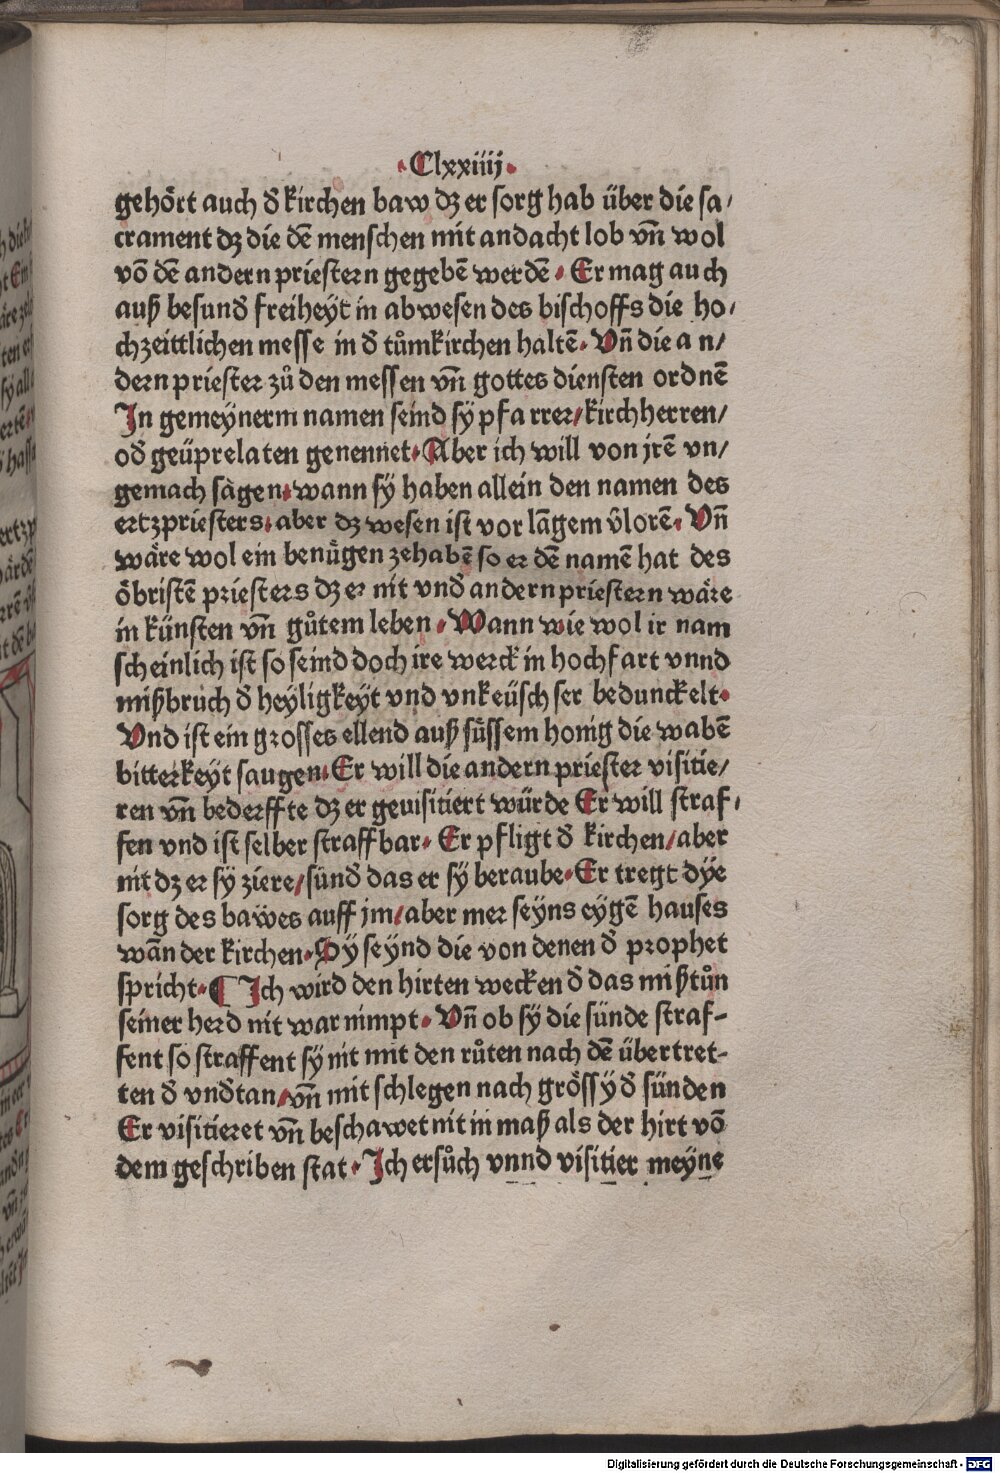 ·Clxxiiij·
gehört auch đ kirchen baw dz er sorg hab über die sa/
crament dz die dē menschen mit andacht lob vn̄ wol
vō dē andern priestern gegebē werdē· Er mag auch
auß besunđ freiheyt in abwesen des bischoffs die ho/
chzeittlichen messe in đ tůmkirchen haltē· Vn̄ die an/
dern priester zů den messen vn̄ gottes diensten ordnē
In gemeynerm namen seind sÿ pfarrer/kirchherren/
ođ geüprelaten genennet· Aber ich will von jrē vn/
gemach sàgen· wann sÿ haben allein den namen des
ertzpriesters· aber dz wesen ist vor lāgem v̄lorē· Vn̄
wäre wol ein benügen zehabē so er dē namē hat des
öbristē priesters dz er nit vnđ andern priestern wäre
in künsten vn̄ gůtem leben· Wann wie wol ir nam
scheinlich ist so seind doch ire werck in hochfart vnnd
mißbruch đ heyligkeyt vnd vnkeüsch ser bedunckelt·
Vnd ist ein grosses ellend auß süssem honig die wabē
bitterkeyt saugen· Er will die andern priester visitie/
ren vn̄ bederffte dz er geuisitiert würde Er will straf/
fen vnd ist selber straffbar· Er pfligt đ kirchen/aber
nit dz er sÿ ziere/sünđ das er sÿ beraube· Er tregt dÿe
sorg des baẅes auff jm/aber mer seyns eygē hauses
wān der kirchen· Sÿ seynd die von denen đ prophet
spricht· ¶ Ich wird den hirten wecken đ das mißtůn
seiner herd nit war nimpt· Vn̄ ob sÿ die sünde straf-
fent so straffent sÿ nit mit den růten nach dē übertret-
ten đ vnđtan/vn̄ mit schlegen nach grössÿ đ sünden
Er visitieret vn̄ beschawet nit in maß als der hirt vō
dem geschriben stat· Ich ersůch vnnd visitier meyne
Digitalisierung gefördert durch die Deutsche Forschungsgemeinschaft - DFG